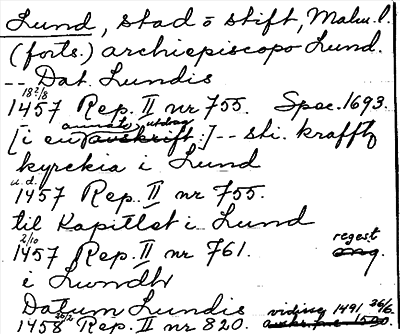 Lund, stad o stift, Malm. l.
(forts.) archiepiscopo Lund.
-- Dat. Lundis
18 2/8
1457 Rep. II nr 755. Spec. 1693.
annat utdrag
[i en avskrift:] -- sti. krafftz
kyrckia i Lund
u. d.
1457 Rep. II nr 755.
til Kapitlet i Lund
2/10 regest
1457 Rep. II nr 761. orig.
i Lwndh
Datum Lundis vidisg 1491 26/6.
26/2
1458 Rep. II nr 820.